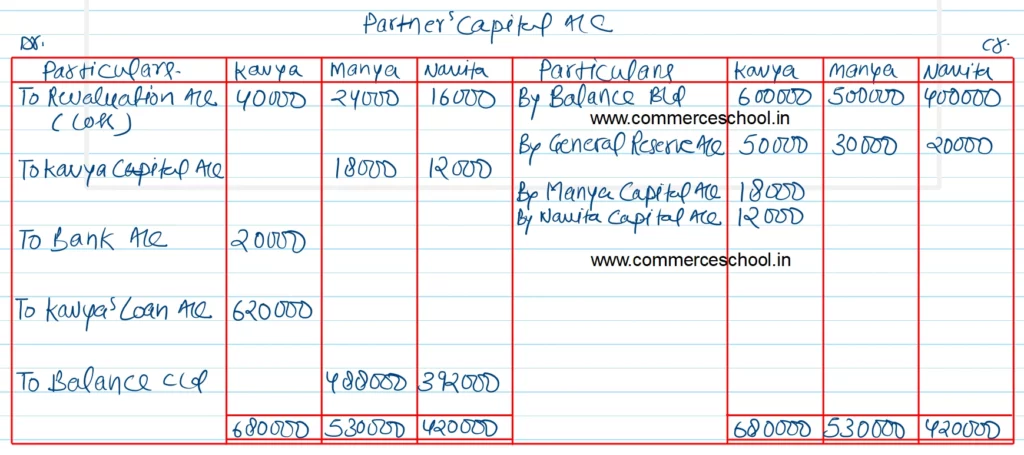 Partner's Capital A/C
Dr. Cr.
Particulars. Kavya Manya Navita Particulars Kavya Manya Navita
To Revaluation A/C 40000 24000 16000 By Balance B/d 600000 500000 400000
(Loss) www.commerceschool.in
By General Reserve A/C 50000 30000 20000
To Kavya Capital A/C 18000 12000
By Manya Capital A/C 18000
By Navita Capital A/C 12000
To Bank A/C 20000
www.commerceschool.in
To Kavya's Loan A/C 620000
To Balance C/d 488000 392000
680000 530000 420000 680000 530000 420000